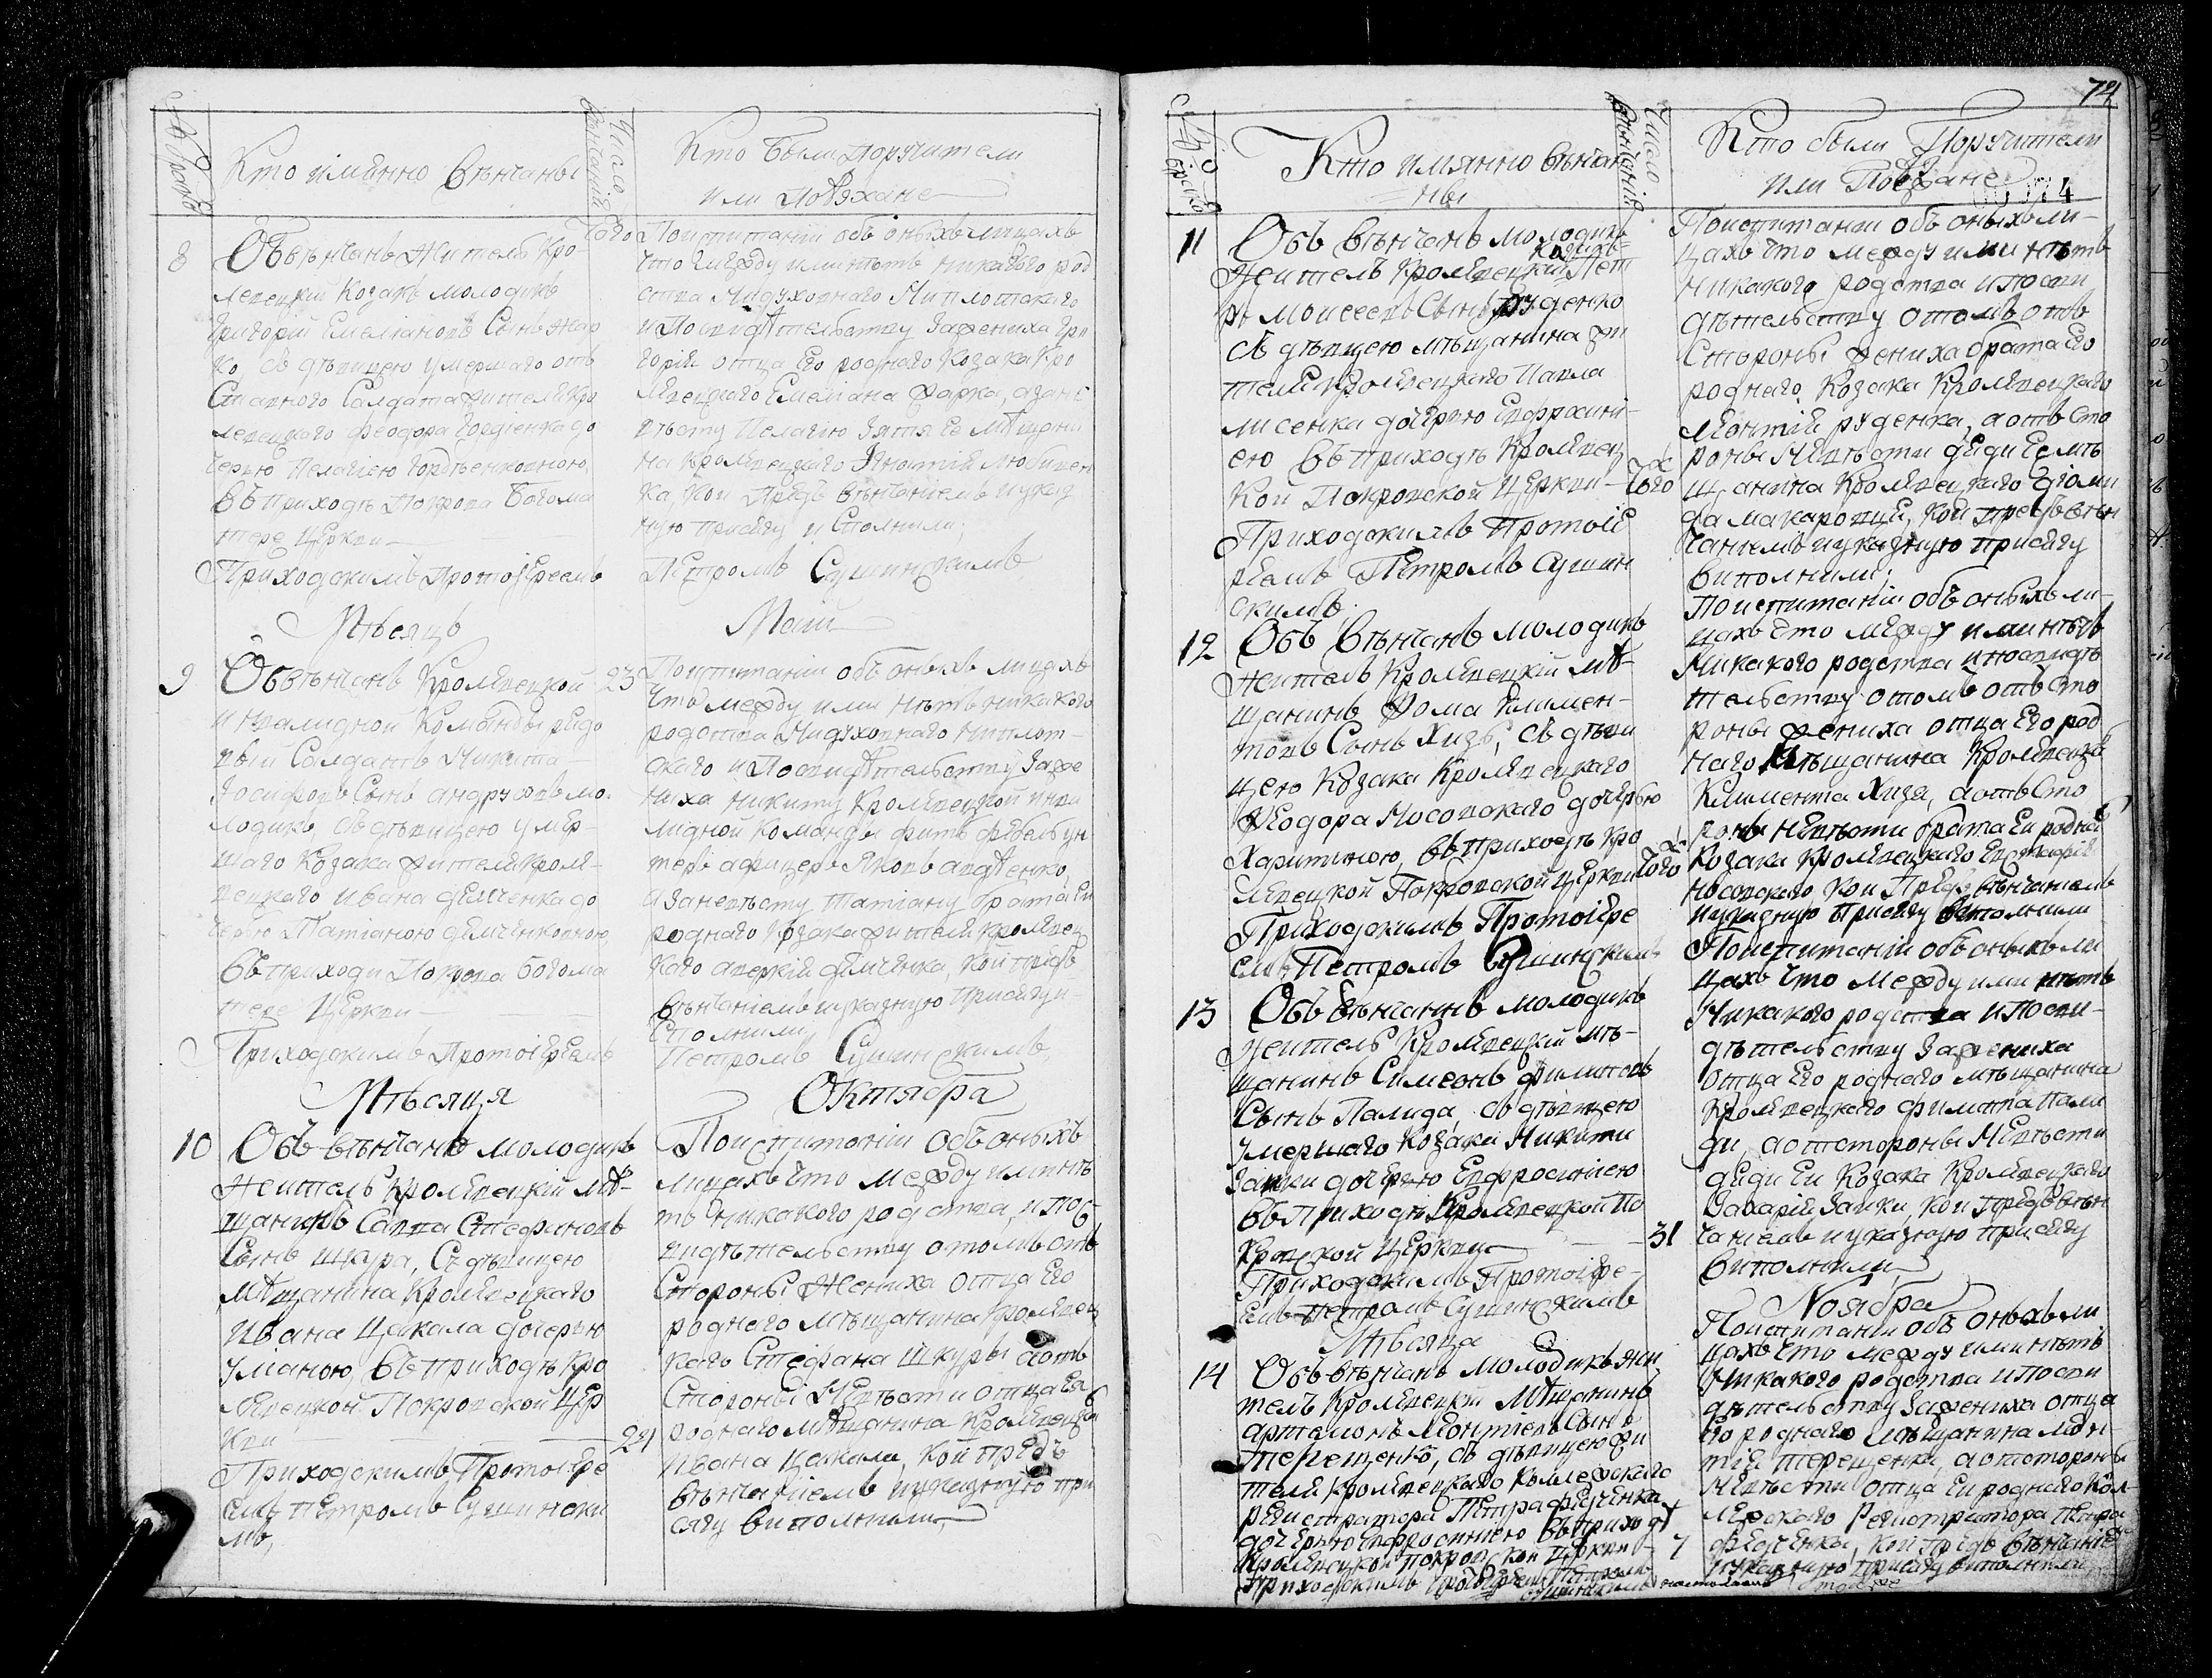 Кто имянно вѣнчаны
Число вѣнчанія
Кто были поручители
или Поѣжане
8
того
Обвѣнчанъ Житель Кро
левецкій Козакъ молодикъ
Григорій Емеліановъ Сынъ Жар
ко, съ дѣвицею умершаго отъ
Ставного Салдата жителя Кро
левецкого Феодора Гордіенка до
черью Пелагіею Гордѣенковною,
въ приходѣ Покрова Богома
тере Церкви
Приходскимъ Протоіереемъ
По испитаніи объ оныхъ лицахъ
что между ими нѣтъ никакого род
ства Нидуховнаго Ниплотскаго
и По свидѣтельству За жениха Гри
горія отца его роднаго Козака Кро
левецкого Емеліана Жарка, а за не
вѣсту Пелагію Зятя ее мѣщани
на Кролевецкаго Игнатія Любивен
ка, Кои предъ вѣнчаніемъ и указ
ную присягу исполнили;
Петромъ Сушинскимъ
Мѣсяцъ
Маій
9
23
Обвѣнчанъ Кролевецкой
инвалидной Команды рядо
вый Салдатъ Никита
Іосифовъ Сынъ Андрухѣвъ мо
лодикъ, съ дѣвицею умер
шаго Козака жителя Кроле
вецкаго Ивана Демченка до
черью Татіаною Демченковною
въ приходи Покрова Богома
тере Церкви
Приходскимъ Протоіереемъ
По испитаніи объ оныхъ лицахъ
Что между ими нѣтъ никакого
родства Нидуховнаго Ниплот
скаго и По свидѣтельству За же
ниха Никиту Кролевецкой инва
лидной Команды
теръ афицеръ Яковъ
а за невѣсту Татіану брата Еи
роднаго Козака жителя Кролевец
каго Аверкія Демченка, Кои предъ
вѣнчаніемъ и указную Присягу и
сполнили
Петромъ Сушинскимъ
Мѣсяця
Октября
10
21
Обвѣнчанъ молодикъ
Житель Кролевецкій мѣ
щанинъ Савва Стефановъ
Сынъ Шкура, Съ дѣвицею
Мѣщанина Кролевецкаго
Ивана Цакала дочерью
Уліаною, въ приходѣ Кро
левецкой Покровской Цер
кви
Приходскимъ Протоіере
емъ Петромъ Сушински
мъ,
По испитаніи объ оныхъ
лицахъ что между ими нѣ
тъ никакого родства, и по с
видѣтельству о томъ отъ
Стороны Жениха отца Его
роднаго мѣщанина Кролевец
каго Стефана Шкуры а отъ
Стороны Невѣсти отца Ея
роднаго мѣщанина Кролевецка
Ивана Цакала, Кои предъ
вѣнчаніемъ и указную при
сягу виполнили
74
Кто имянно вѣнча
ны
Число вѣнчанія
Кто были Поручители
или Поѣзжане
11
Того ж
Обвѣнчанъ молодикъ
Козакъ
Житель Кролевецкій Пет
ръ Моисеевъ Сынъ Руденко
Съ дѣвицею мѣщанина жи
теля Кролевецкаго Павла
Лисенка дочерью Евфросині
ею въ приходѣ Кролевец
кой Покровской Церкви
Приходскимъ Протоіе
реемъ Петромъ Сушин
скимъ
По испитаніи объ оныхъ ли
цахъ что между ими нѣтъ
никакого родства и по сви
дѣтельству о томъ отъ
Стороны жениха брата его
роднаго Козака Кролевецкаго
Леонтія Руденка, а отъ Сто
роны Невѣсти дяди Ее мѣ
щанина Кролевецкаго
Макаровца, Кои предъ вѣн
чаніемъ и указную присягу
виполнили;
12
Того ж
Обвѣнчанъ молодикъ
Житель Кролевецкій мѣ
щанинъ Фома Климен
товъ Сынъ Хизъ, съ дѣви
цею Козака Кролевецкаго
Феодора Носовскаго дочерью
Харитиною, въ приходѣ Кро
левецкой Покровской Церкви
Приходскимъ Протоіере
емъ Петромъ Сушинскимъ
По испитаніи объ оныхъ ли
цахъ что между ими нѣтъ
Никакого родства и по свидѣ
тельству о томъ отъ Сто
роны жениха отца Его род
наго Мѣщанина Кролевецка
Климента Хиза, а отъ Сто
роны Невѣсти брата Еи родна
Козака Кролевецкаго
Носовскаго Кои Предъ вѣнчаніемъ
и указную Присягу виполнили
13
31
Обвѣнчанъ молодикъ
Житель Кролевецкій мѣ
щанинъ Симеонъ Филиповъ
Сынъ Палида, съ дѣвицею
Умершаго Козака Никити
Заики дочерью Евфросиніею
въ Приходѣ Кролевецкой По
кровской Церкви
Приходскимъ Протоіере
емъ Петромъ Сушинскимъ
По испитаніи объ оныхъ ли
цахъ Что между ими нѣтъ
Никакого родства и по сви
дѣтельству За жениха
отца Его роднаго мѣщанина
Кролевецкаго Филипа Пали
ди, а отъ стороны Невѣсти
дяди Еи Козака Кролевецкаго
Захарія Заики, Кои предъ вѣн
чаніемъ и указную присягу
виполнили
Мѣсяца
Ноября
14
7
Обвѣнчанъ молодикъ жи
тель Кролевецкій мѣщанинъ
Артамонъ Леонтіевъ Сынъ
Терещенко, съ дѣвицею жи
теля Кролевецкаго Коллежскаго
Регистратора Петра Федченка
дочерью Евфросиніею въ приходѣ
Кролевецкой Покровской Церкви
Приходскимъ Протоіереемъ Петромъ
Сушинскимъ
По испитаніи объ оныхъ ли
цахъ что между ими нѣтъ
Никакого родства и по сви
дѣтельству За жениха отца
Его роднаго мѣщанина Леон
тія Терещенка, а отъ стороны
Невѣсти отца Еи роднаго Кол
лежскаго Регистратора Петра
Федченка, Кои предъ вѣнчаніе
и указную присягу виполнили